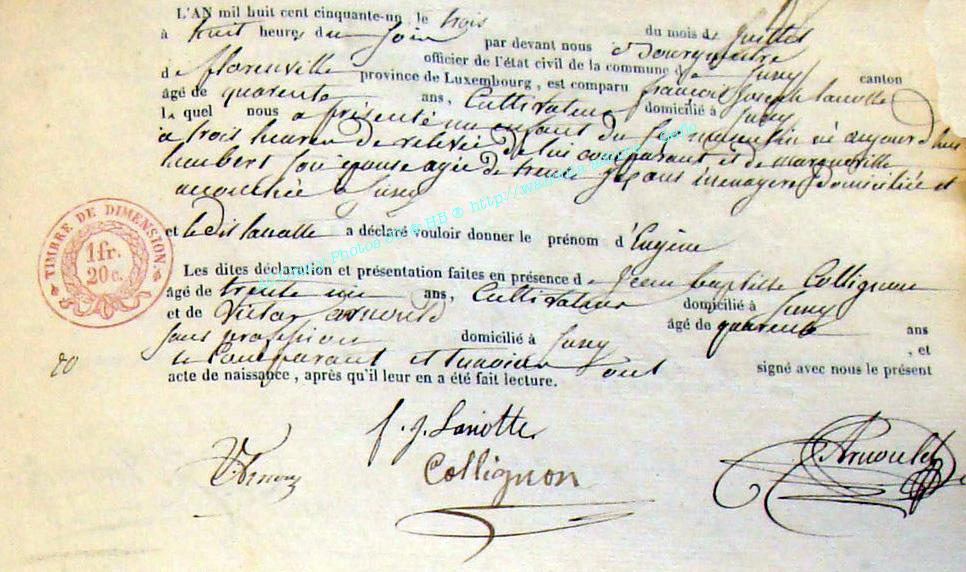 L'AN mil huit cent cinquante-un, le trois du mois de juillet
à huit heures du soir par devant nous Bourgmestre
officier de l'état civil de la commune de Juny canton
de florenville province de Luxembourg, est comparu françois Joseph lanotte
âgé de quarente ans, Cultivateur domicilié à Juny
le quel nous a présenté un enfant du sexe masculin né aujourd'hui
à trois heures de relevée de lui comparant et de marguerite
humbert son épouse agée de trente six ans ménagère domiciliée et
accouchée à Juny
et le dit lanotte a déclaré vouloir donner le prénom d'Eugène
Les dites déclaration et présentation faites en présence de Jean baptiste Collignon
âgé de trente ans, Cultivateur domicilié à Juny
et de Victor arnould âgé de quarente ans
sans profession domicilié à Juny , et
le Comparant et temoins ont signé avec nous le présent
acte de naissance, après qu'il leur en a été fait lecture.
TIMBRE DE DIMENSION
1 fr.
20 c.
20
f. j. Lanotte
V. Arnould
Collignon
Arnould